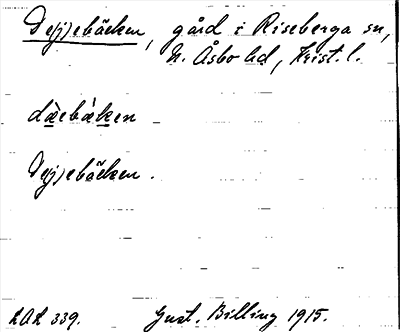 De(j)ebäcken, gård i Riseberga sn,
N. Åsbo hd, Krist. l.
dæ̀ebǽken
De(j)ebäcken.
LAL 339. Gust. Billing 1915.